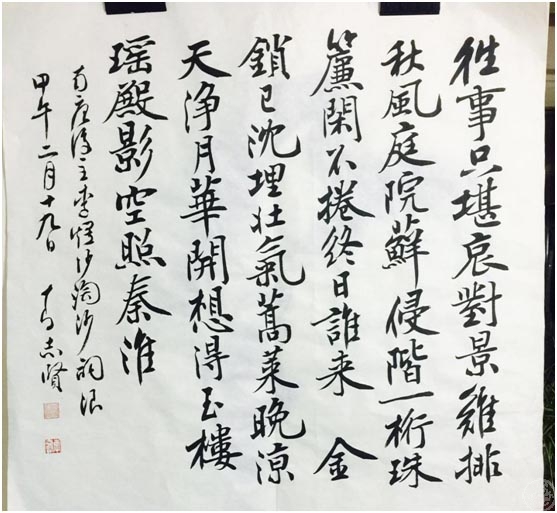 往事只堪哀對景難排
秋風庭院蘚侵階一桁珠
簾閑不捲終日誰来 金
鎖已沈埋壯氣蒿萊晚涼
天淨月華開想得玉樓
瑶殿影空照秦淮
南唐後主李煜沙淘沙詞浪
甲午二月十九日 志賢